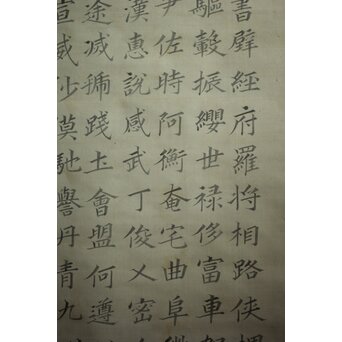 書壁經府羅將相路俠
驅轂振纓世禄侈富車
尹佐時阿衡奄宅曲阜
漢惠說感武丁俊乂密
途减虢踐圡會盟何遵
宣威沙漠馳譽丹青九